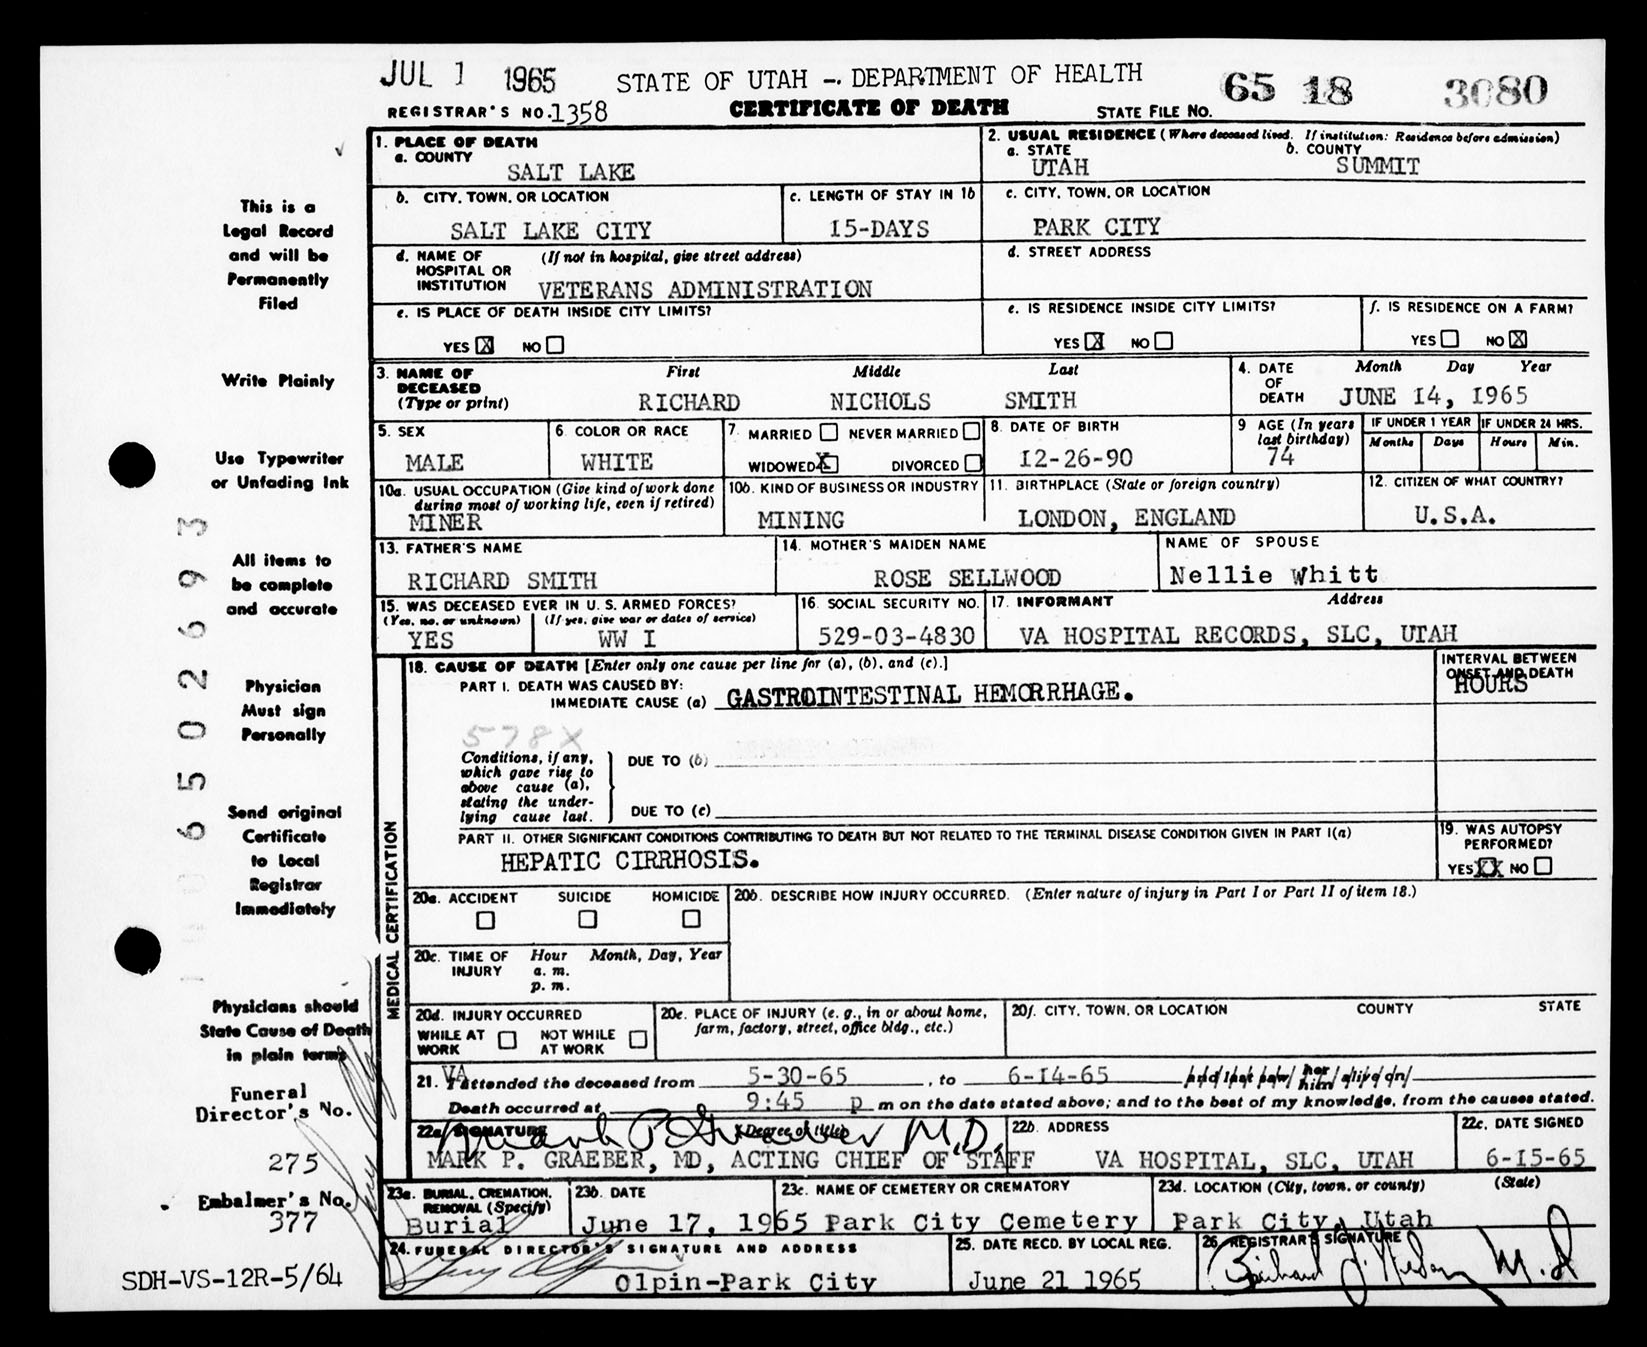 JUL 1 1965 STATE OF UTAH — DEPARTMENT OF HEALTH 65 18 3080
REGISTRAR'S NO. 1358 CERTIFICATE OF DEATH STATE FILE NO.
This is a
Legal Record
and will be
Permanently
Filed
Write Plainly
Use Typewriter
or Unfading Ink
All items to
be complete
and accurate
Physician
Must sign
Personally
Send original
Certificate
to Local
Registrar
Immediately
Physicians should
State Cause of Death
in plain terms
Funeral
Director's No.
275
Embalmer's No.
377
SDH-VS-12R-5/64
6502693
1. PLACE OF DEATH
a. COUNTY
SALT LAKE
2. USUAL RESIDENCE (Where deceased lived. If institution: Residence before admission)
a. STATE b. COUNTY
UTAH SUMMIT
b. CITY, TOWN, OR LOCATION
SALT LAKE CITY
c. LENGTH OF STAY IN 1b
15-DAYS
c. CITY, TOWN, OR LOCATION
PARK CITY
d. NAME OF HOSPITAL OR INSTITUTION (If not in hospital, give street address)
VETERANS ADMINISTRATION
d. STREET ADDRESS
e. IS PLACE OF DEATH INSIDE CITY LIMITS?
YES X NO
e. IS RESIDENCE INSIDE CITY LIMITS?
YES X NO
f. IS RESIDENCE ON A FARM?
YES NO X
3. NAME OF DECEASED (Type or print) First Middle Last
RICHARD NICHOLS SMITH
4. DATE OF DEATH Month Day Year
JUNE 14, 1965
5. SEX
MALE
6. COLOR OR RACE
WHITE
7. MARRIED NEVER MARRIED
WIDOWED X DIVORCED
8. DATE OF BIRTH
12-26-90
9 AGE (In years last birthday)
74
IF UNDER 1 YEAR IF UNDER 24 HRS.
Months Days Hours Min.
10a. USUAL OCCUPATION (Give kind of work done during most of working life, even if retired)
MINER
10b. KIND OF BUSINESS OR INDUSTRY
MINING
11. BIRTHPLACE (State or foreign country)
LONDON, ENGLAND
12. CITIZEN OF WHAT COUNTRY?
U.S.A.
13. FATHER'S NAME
RICHARD SMITH
14. MOTHER'S MAIDEN NAME
ROSE SELLWOOD
NAME OF SPOUSE
Nellie Whitt
15. WAS DECEASED EVER IN U. S. ARMED FORCES?
(Yes, no, or unknown) (If yes, give war or dates of service)
YES WW I
16. SOCIAL SECURITY NO.
529-03-4830
17. INFORMANT Address
VA HOSPITAL RECORDS, SLC, UTAH
MEDICAL CERTIFICATION
18. CAUSE OF DEATH [Enter only one cause per line for (a), (b), and (c).]
PART I. DEATH WAS CAUSED BY:
IMMEDIATE CAUSE (a) GASTROINTESTINAL HEMORRHAGE.
INTERVAL BETWEEN ONSET AND DEATH
HOURS
578X
Conditions, if any, which gave rise to above cause (a), stating the underlying cause last.
DUE TO (b)
DUE TO (c)
PART II. OTHER SIGNIFICANT CONDITIONS CONTRIBUTING TO DEATH BUT NOT RELATED TO THE TERMINAL DISEASE CONDITION GIVEN IN PART I(a)
HEPATIC CIRRHOSIS.
19. WAS AUTOPSY PERFORMED?
YES XX NO
20a. ACCIDENT SUICIDE HOMICIDE
20b. DESCRIBE HOW INJURY OCCURRED. (Enter nature of injury in Part I or Part II of item 18.)
20c. TIME OF INJURY Hour Month, Day, Year
a. m.
p. m.
20d. INJURY OCCURRED
WHILE AT WORK NOT WHILE AT WORK
20e. PLACE OF INJURY (e. g., in or about home, farm, factory, street, office bldg., etc.)
20f. CITY, TOWN, OR LOCATION COUNTY STATE
21. VA I attended the deceased from 5-30-65, to 6-14-65 and last saw her him alive on
Death occurred at 9:45 p m on the date stated above; and to the best of my knowledge, from the causes stated.
22a. SIGNATURE (Degree or title)
Mark P Graeber M.D.
MARK P. GRAEBER, MD, ACTING CHIEF OF STAFF
22b. ADDRESS
VA HOSPITAL, SLC, UTAH
22c. DATE SIGNED
6-15-65
23a. BURIAL, CREMATION, REMOVAL (Specify)
Burial
23b. DATE
June 17, 1965
23c. NAME OF CEMETERY OR CREMATORY
Park City Cemetery
23d. LOCATION (City, town, or county) (State)
Park City, Utah
24. FUNERAL DIRECTOR'S SIGNATURE AND ADDRESS
Olpin-Park City
25. DATE RECD. BY LOCAL REG.
June 21 1965
26. REGISTRAR'S SIGNATURE
M.D